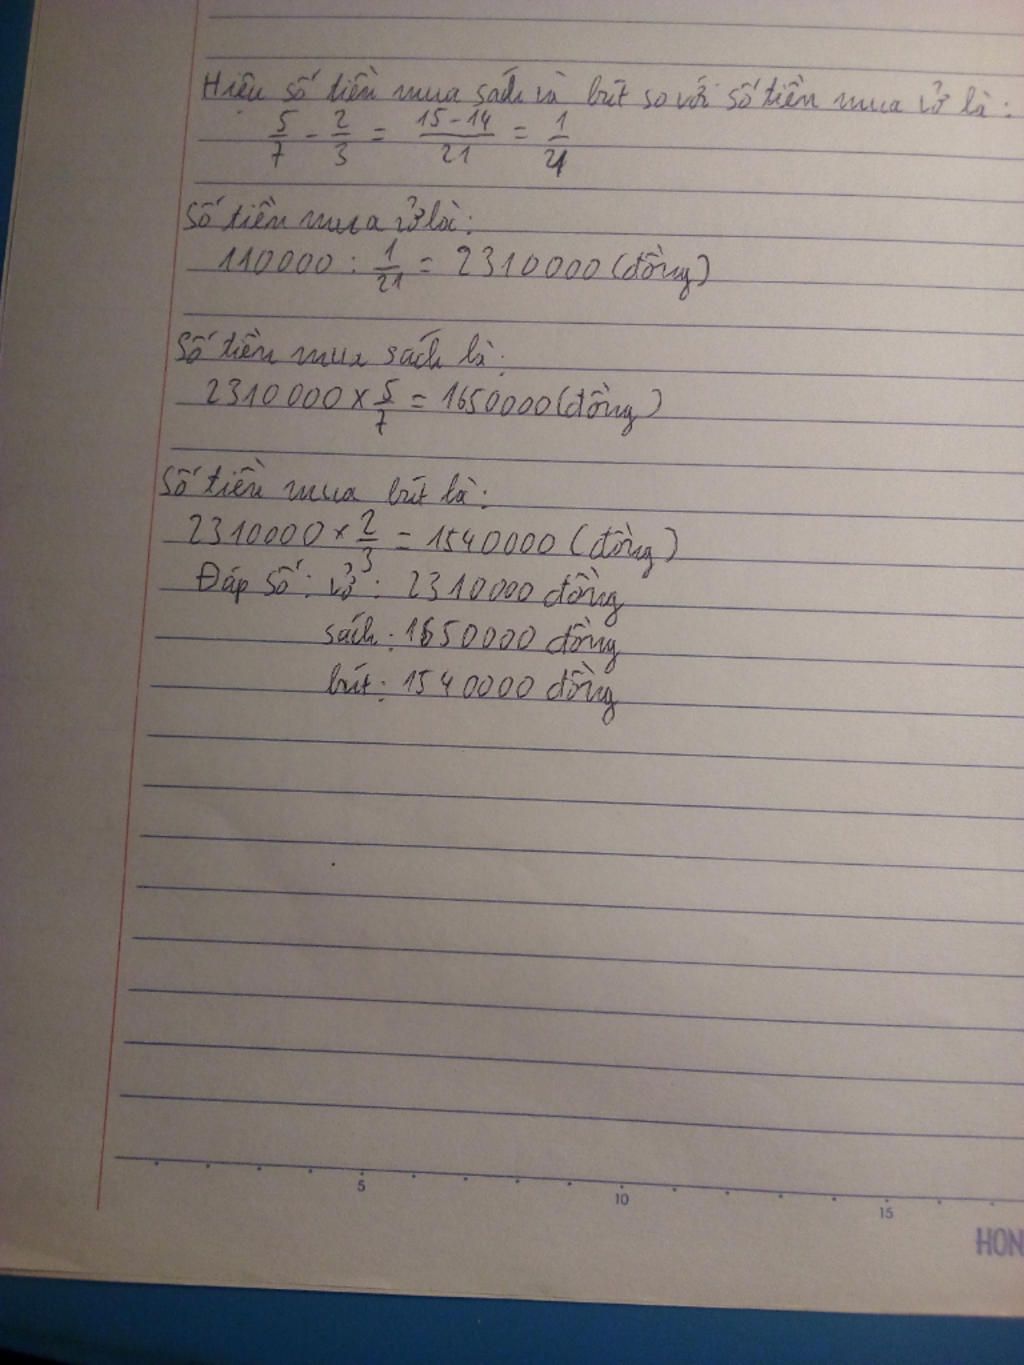 Hiệu số tiền mua sách và bút so với số tiền mua vở là:
5/7 - 2/3 = 15-14/21 = 1/21
Số tiền mua vở là:
110000 : 1/21 = 2310000 (đồng)
Số tiền mua sách là:
2310000 × 5/7 = 1650000 (đồng)
Số tiền mua bút là:
2310000 × 2/3 = 1540000 (đồng)
Đáp số: vở: 2310000 đồng
sách: 1650000 đồng
bút: 1540000 đồng
5 10 15
HON